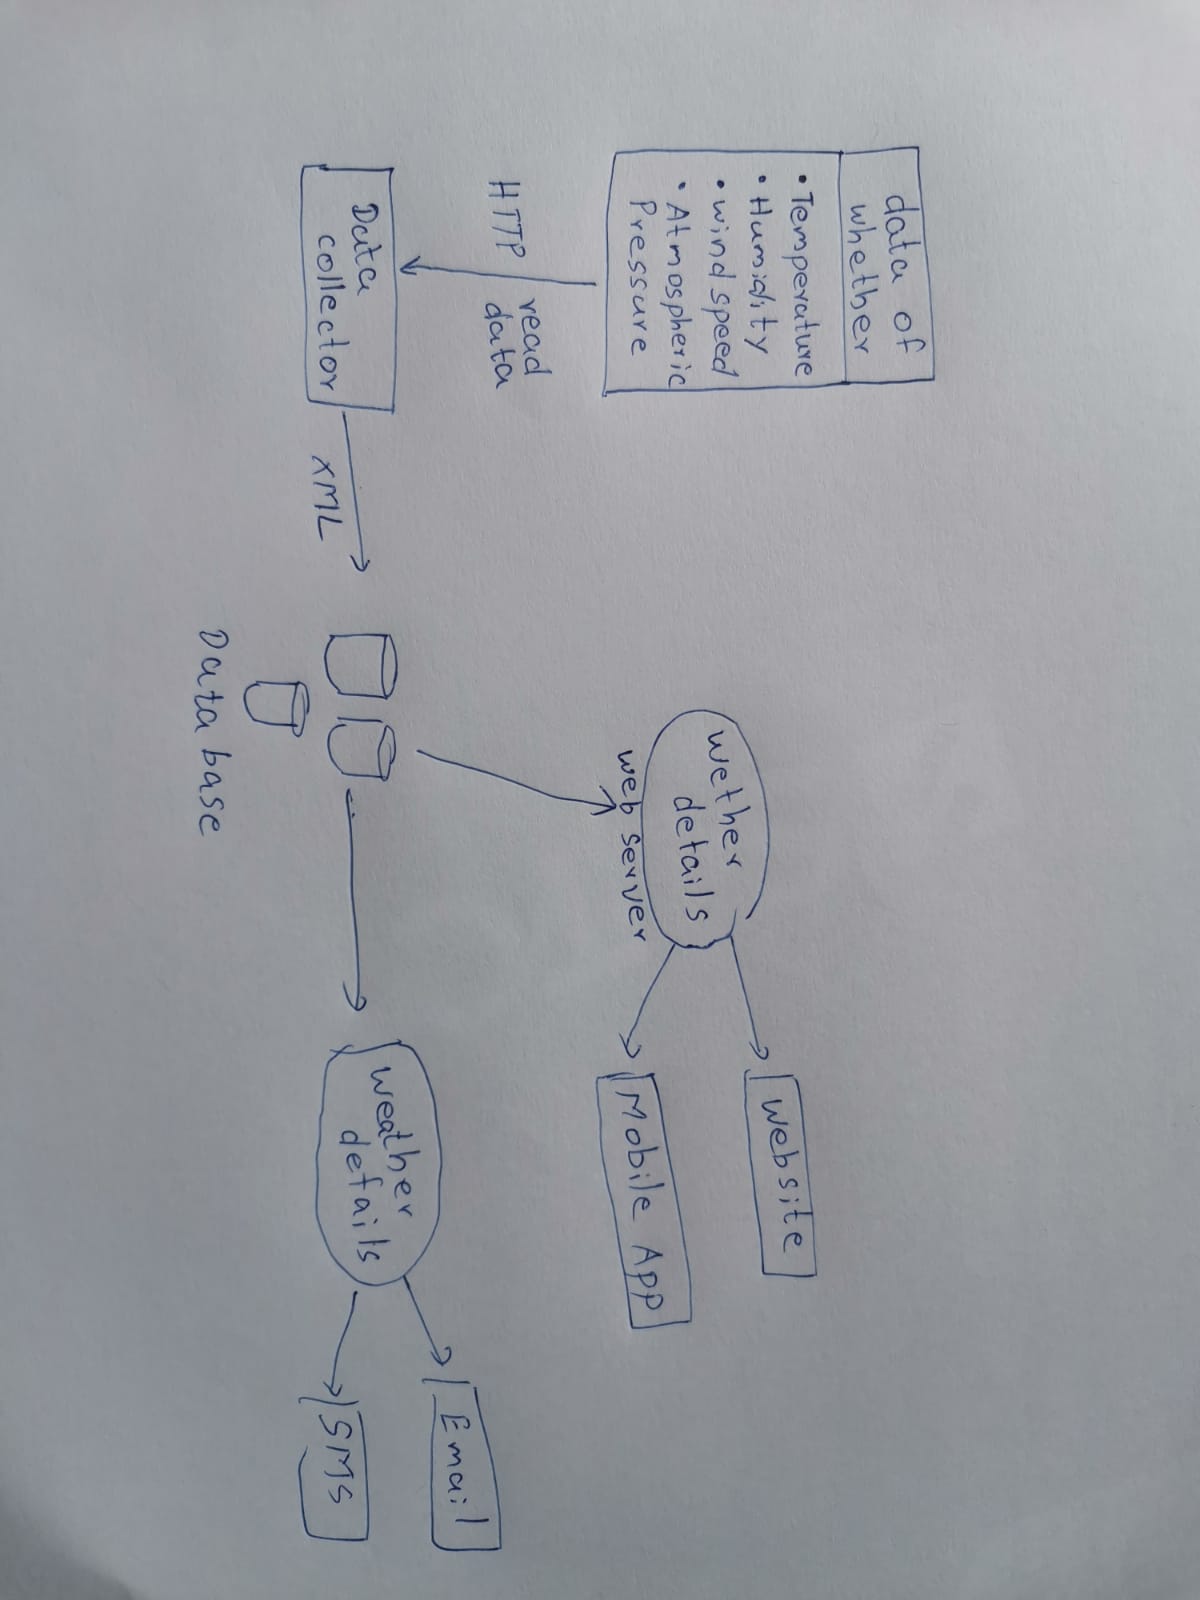 data of
whether
• Temperature
• Humidity
• wind speed
• Atmospheric
Pressure
HTTP
read
data
Data
collector
XML
Data base
wether
details
web server
website
Mobile App
weather
details
Email
SMS